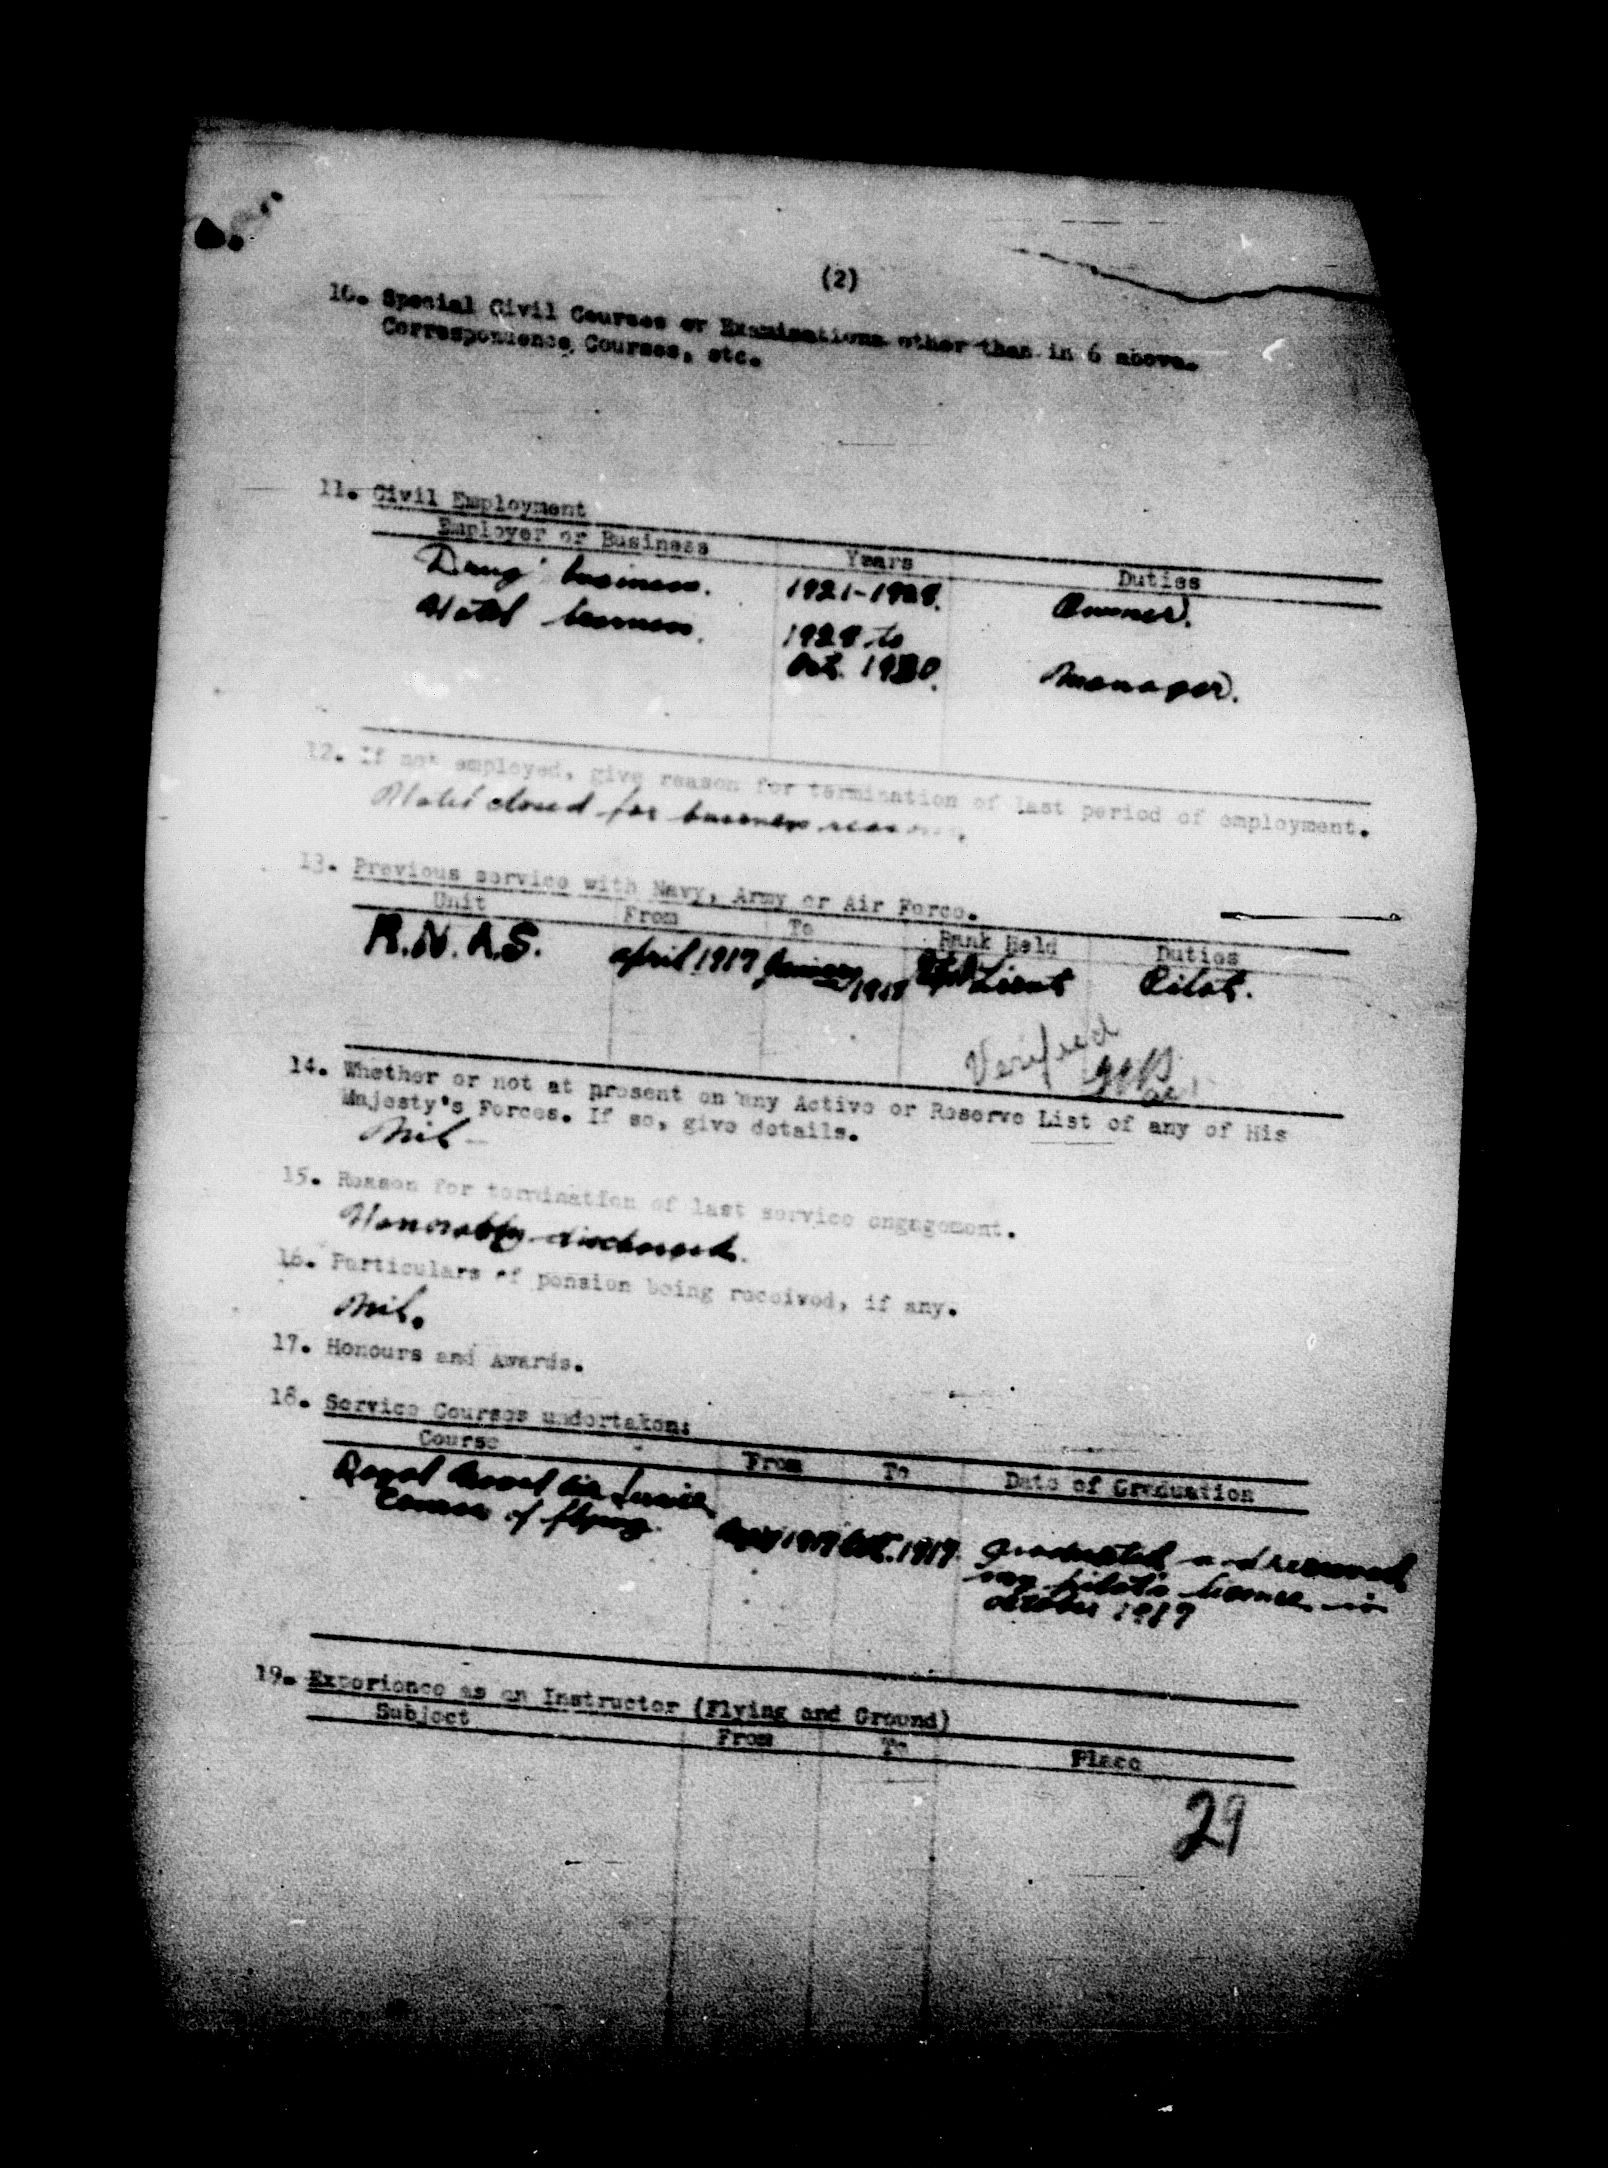 (2)
10. Special Civil Courses or Examinations other than in 6 above.
Correspondence Courses, etc.
11. Civil Employment
Employer or Business Years Duties
Drug business. 1921-1928. Owner.
Hotel business. 1928 to
Oct. 1930. Manager.
12. If not employed, give reason for termination of last period of employment.
Hotel closed for business reasons.
13. Previous service with Navy, Army or Air Force.
Unit From To Rank Held Duties
R.N.A.S. April 1917 January 1918 Lieut Pilot.
Verified
14. Whether or not at present on any Active or Reserve List of any of His
Majesty's Forces. If so, give details.
Nil -
15. Reason for termination of last service engagement.
Honorably discharged.
16. Particulars of pension being received, if any.
Nil.
17. Honours and Awards.
18. Service Courses undertaken:
Course From To Date of Graduation
Royal Naval Air Service
Course of flying. April 1917 Oct. 1917 Graduated and received
my pilot's license in
October 1917
19. Experience as an Instructor (Flying and Ground)
Subject From To Place
29